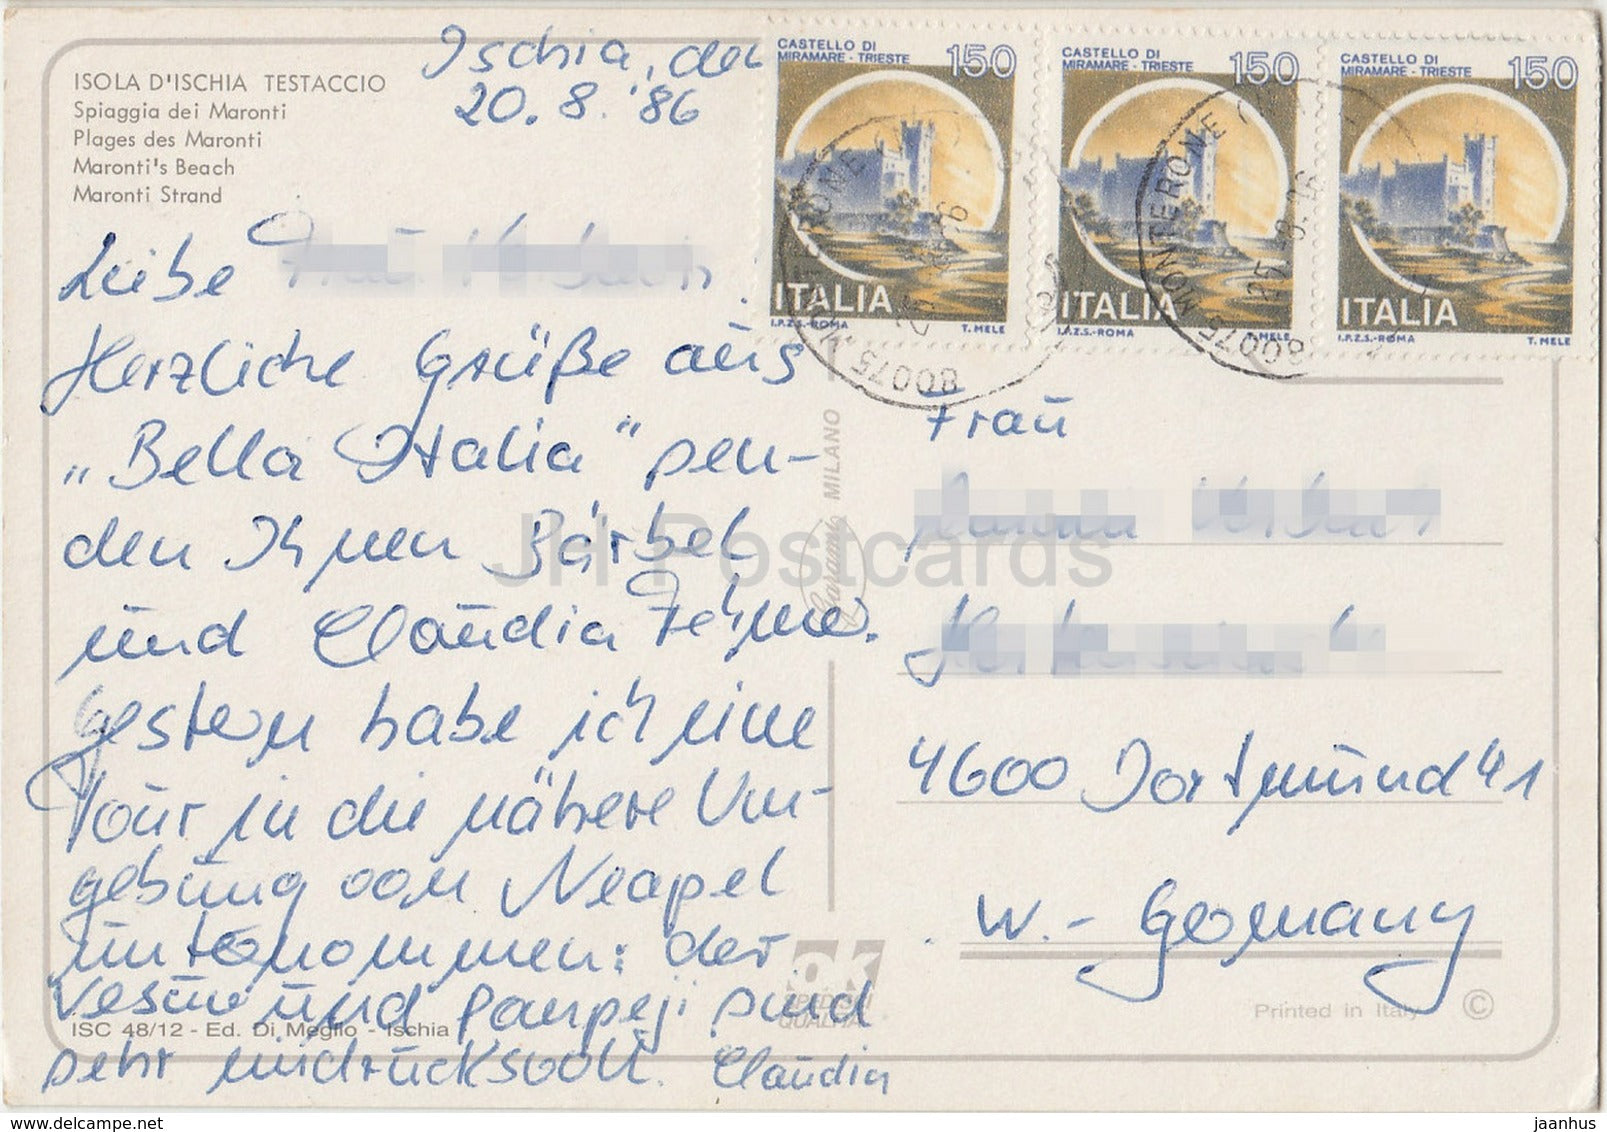 ISOLA D'ISCHIA TESTACCIO
Spiaggia dei Maronti
Plages des Maronti
Maronti's Beach
Maronti Strand
Ischia, den
20.8.'86
Liebe
Herzliche Grüße aus
„Bella Italia“ sen-
den Ihnen Bärbel
und Claudia
Gestern habe ich eine
Tour in die nähere Um-
gebung von Neapel
unternommen: der
Vesuv und Pompeji sind
sehr eindrucksvoll. Claudia
ISC 48/12 - Ed. Di Meglio - Ischia
CASTELLO DI
MIRAMARE - TRIESTE
150
ITALIA
I.P.Z.S.-ROMA T. MELE
CASTELLO DI
MIRAMARE - TRIESTE
150
ITALIA
I.P.Z.S.-ROMA T. MELE
CASTELLO DI
MIRAMARE - TRIESTE
150
ITALIA
I.P.Z.S.-ROMA T. MELE
80075
80075 MONTERONE
MILANO
Garami
Frau
4600 Dortmund 41
W.-Germany
ok
SPECIAL
QUALITA'
Printed in Italy ©
JH Postcards
www.hippostcard.com
jaanhus